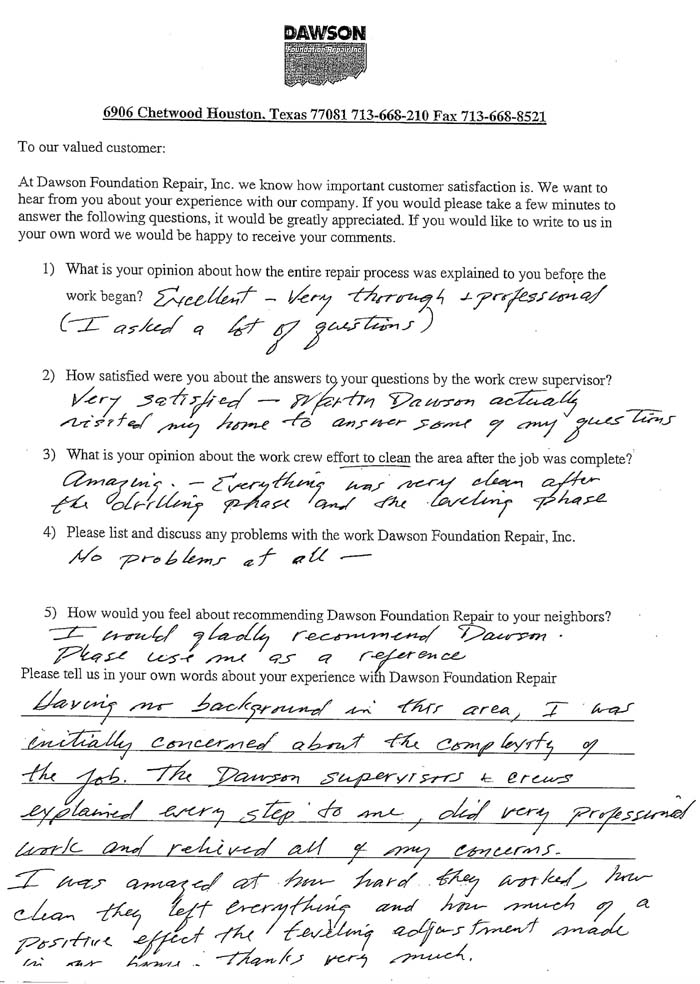 DAWSON
Foundation Repair Inc.
6906 Chetwood Houston. Texas 77081 713-668-210 Fax 713-668-8521
To our valued customer:
At Dawson Foundation Repair, Inc. we know how important customer satisfaction is. We want to
hear from you about your experience with our company. If you would please take a few minutes to
answer the following questions, it would be greatly appreciated. If you would like to write to us in
your own word we would be happy to receive your comments.
1) What is your opinion about how the entire repair process was explained to you before the
work began? Excellent - Very thorough + professional
(I asked a lot of questions)
2) How satisfied were you about the answers to your questions by the work crew supervisor?
Very satisfied - Martin Dawson actually
visited my home to answer some of my questions
3) What is your opinion about the work crew effort to clean the area after the job was complete?
Amazing. - Everything was very clean after
the drilling phase and the leveling phase
4) Please list and discuss any problems with the work Dawson Foundation Repair, Inc.
No problems at all -
5) How would you feel about recommending Dawson Foundation Repair to your neighbors?
I would gladly recommend Dawson.
Please use me as a reference
Please tell us in your own words about your experience with Dawson Foundation Repair
Having no background in this area, I was
initially concerned about the complexity of
the job. The Dawson supervisors & crews
explained every step to me, did very professional
work and relieved all of my concerns.
I was amazed at how hard they worked, how
clean they left everything and how much of a
positive effect the leveling adjustment made
in our home. Thanks very much.